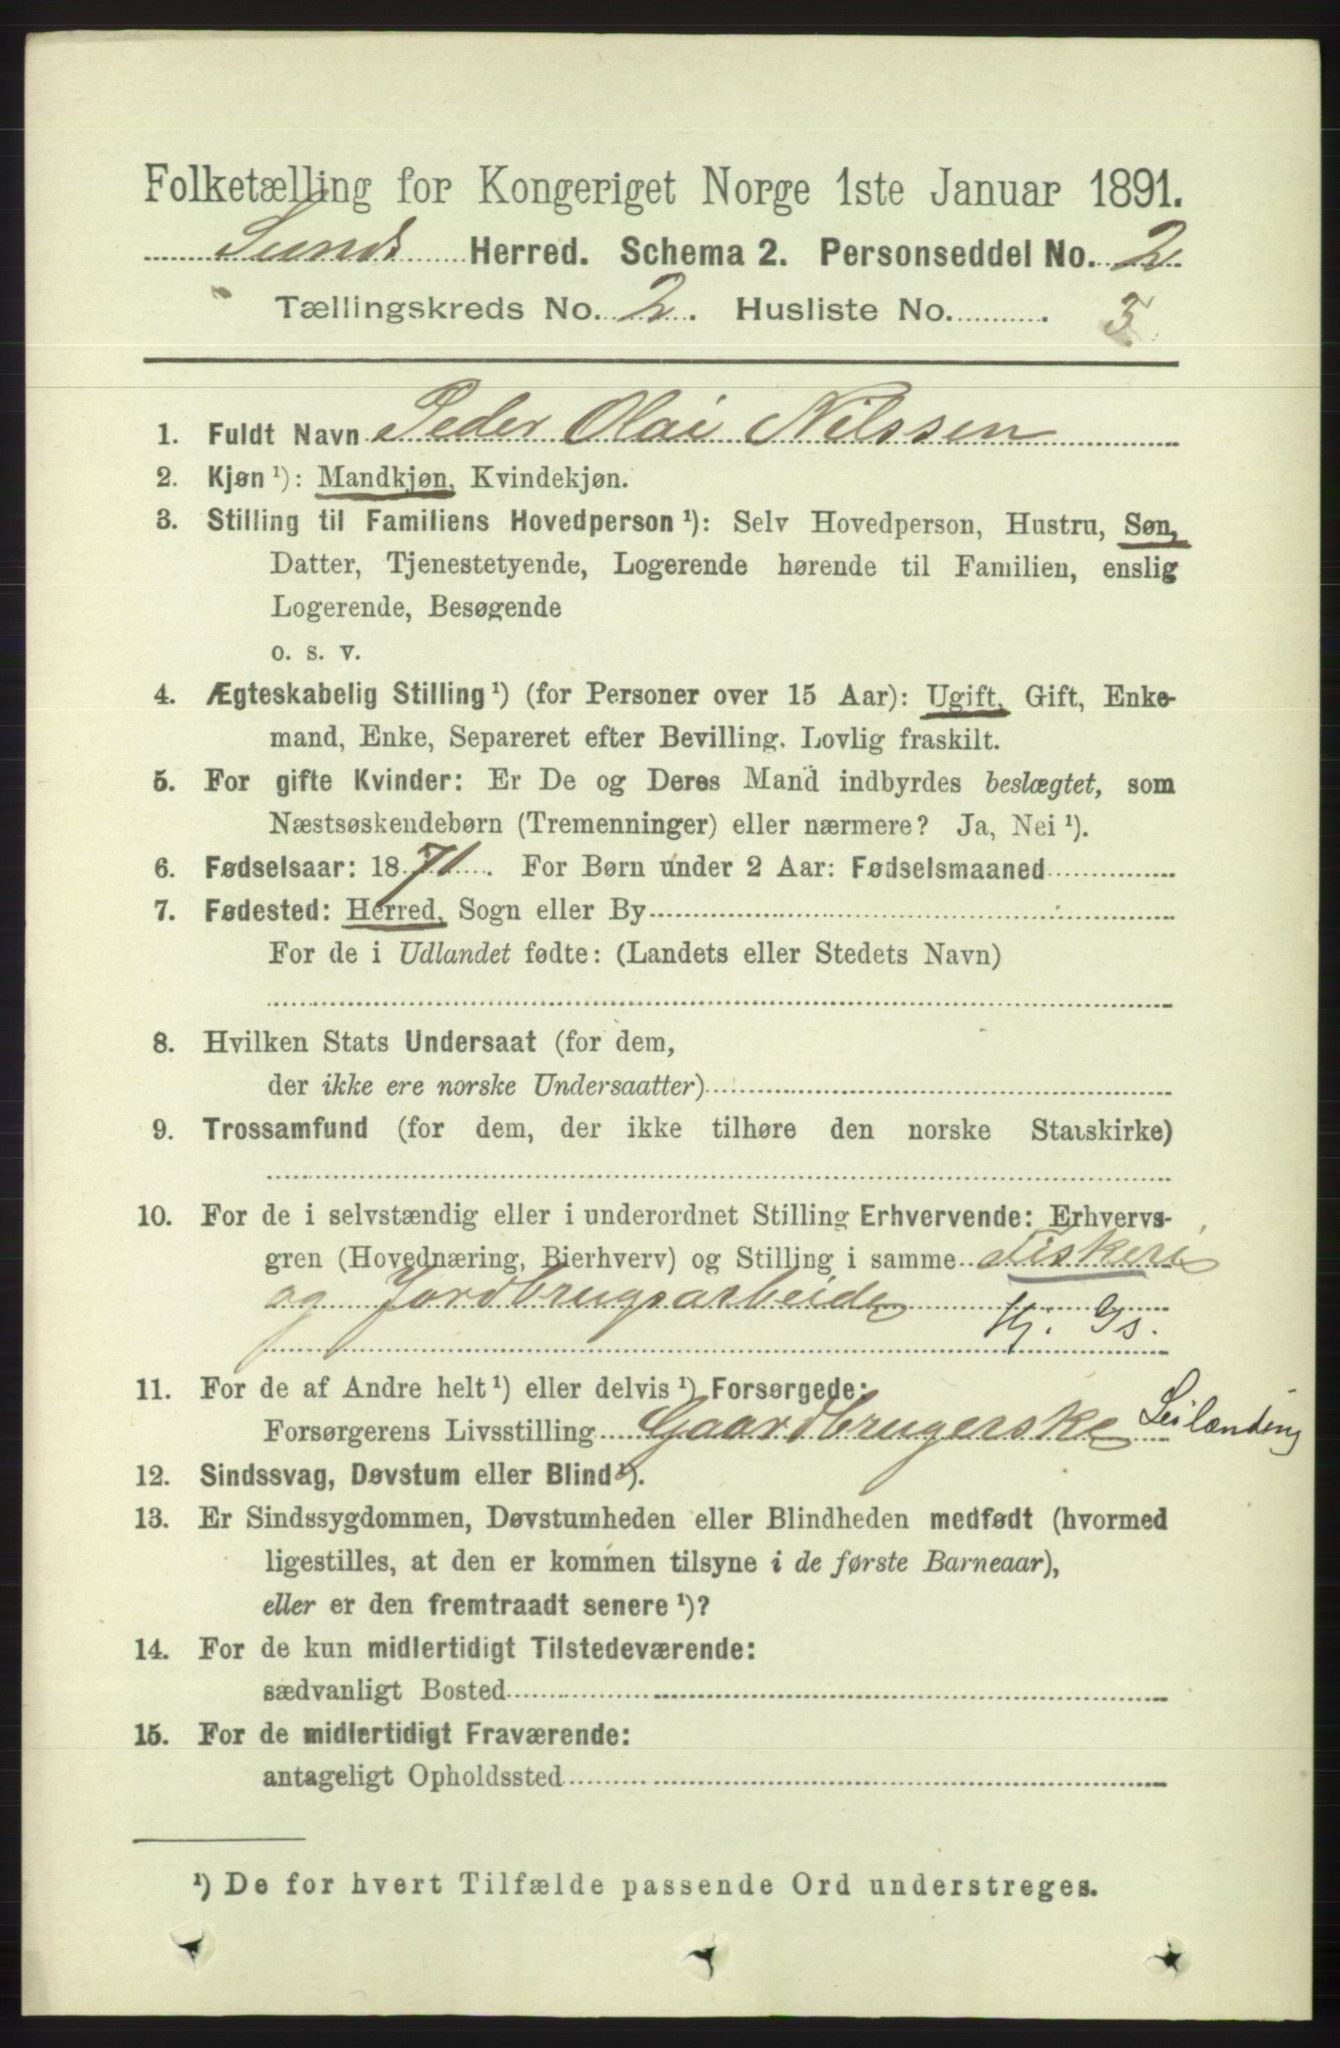 Folketælling for Kongeriget Norge 1ste Januar 1891.
Sunds Herred. Schema 2. Personseddel No. 2
Tællingskreds No. 2. Husliste No. 3
1. Fuldt Navn Peder Olai Nilssen
2. Kjøn ¹): Mandkjøn, Kvindekjøn.
3. Stilling til Familiens Hovedperson ¹): Selv Hovedperson, Hustru, Søn,
Datter, Tjenestetyende, Logerende hørende til Familien, enslig
Logerende, Besøgende
o. s. v.
4. Ægteskabelig Stilling ¹) (for Personer over 15 Aar): Ugift, Gift, Enke-
mand, Enke, Separeret efter Bevilling. Lovlig fraskilt.
5. For gifte Kvinder: Er De og Deres Mand indbyrdes beslægtet, som
Næstsøskendebørn (Tremenninger) eller nærmere? Ja, Nei ¹).
6. Fødselsaar: 1871. For Børn under 2 Aar: Fødselsmaaned
7. Fødested: Herred, Sogn eller By
For de i Udlandet fødte: (Landets eller Stedets Navn)
8. Hvilken Stats Undersaat (for dem,
der ikke ere norske Undersaatter)
9. Trossamfund (for dem, der ikke tilhøre den norske Statskirke)
10. For de i selvstændig eller i underordnet Stilling Erhvervende: Erhvervs-
gren (Hovednæring, Bierhverv) og Stilling i samme Fiskeri
og Jordbrugsarbeide
Hj. Gs.
11. For de af Andre helt ¹) eller delvis ¹) Forsørgede:
Forsørgerens Livsstilling Gaardbrugerske Leilænding
12. Sindssvag, Døvstum eller Blind ¹).
13. Er Sindssygdommen, Døvstumheden eller Blindheden medfødt (hvormed
ligestilles, at den er kommen tilsyne i de første Barneaar),
eller er den fremtraadt senere ¹)?
14. For de kun midlertidigt Tilstedeværende:
sædvanligt Bosted
15. For de midlertidigt Fraværende:
antageligt Opholdssted
¹) De for hvert Tilfælde passende Ord understreges.